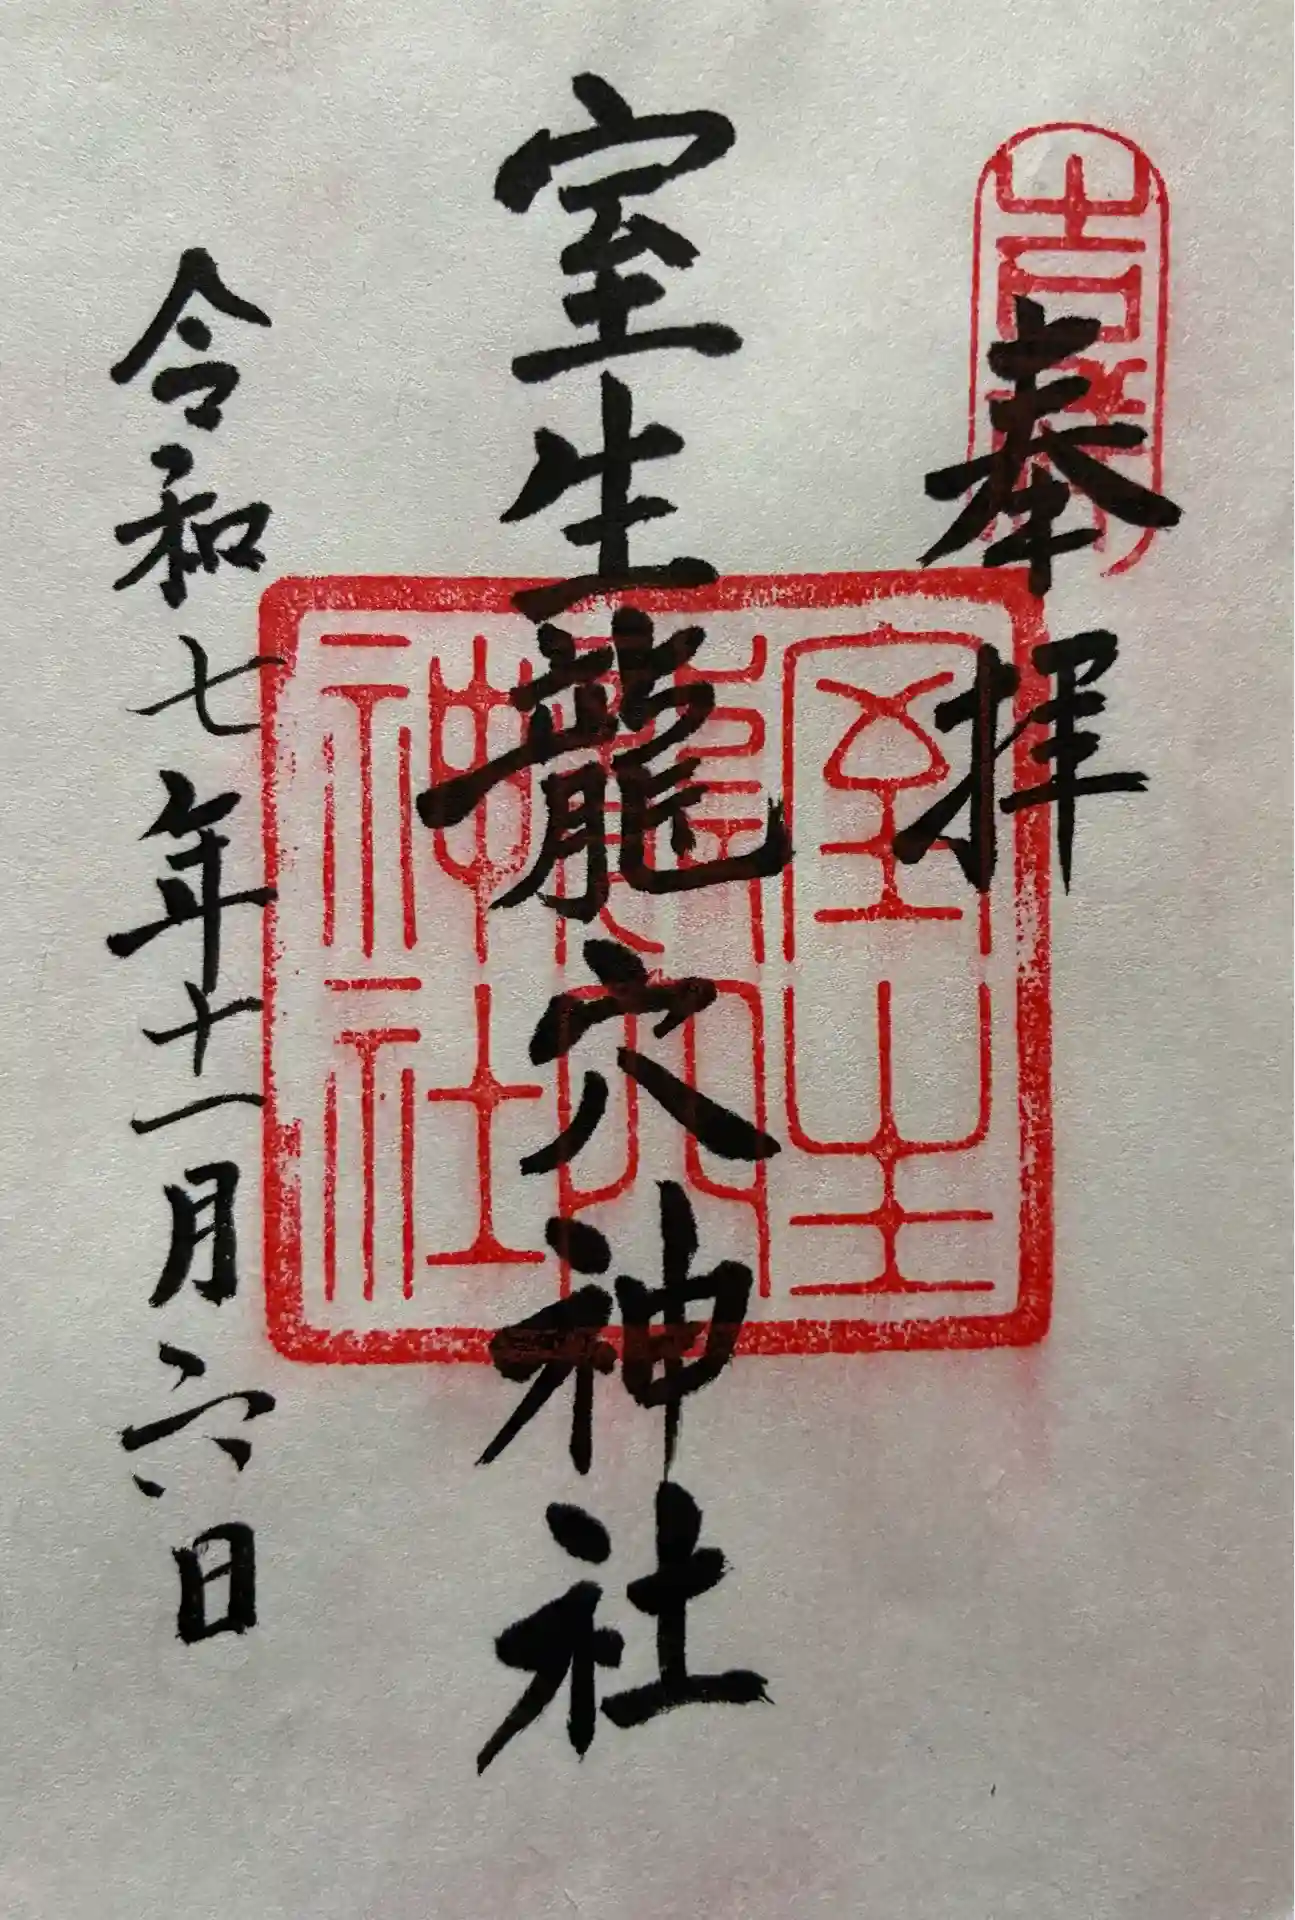 奉拝
室生龍穴神社
室生龍穴神社
令和七年十一月六日